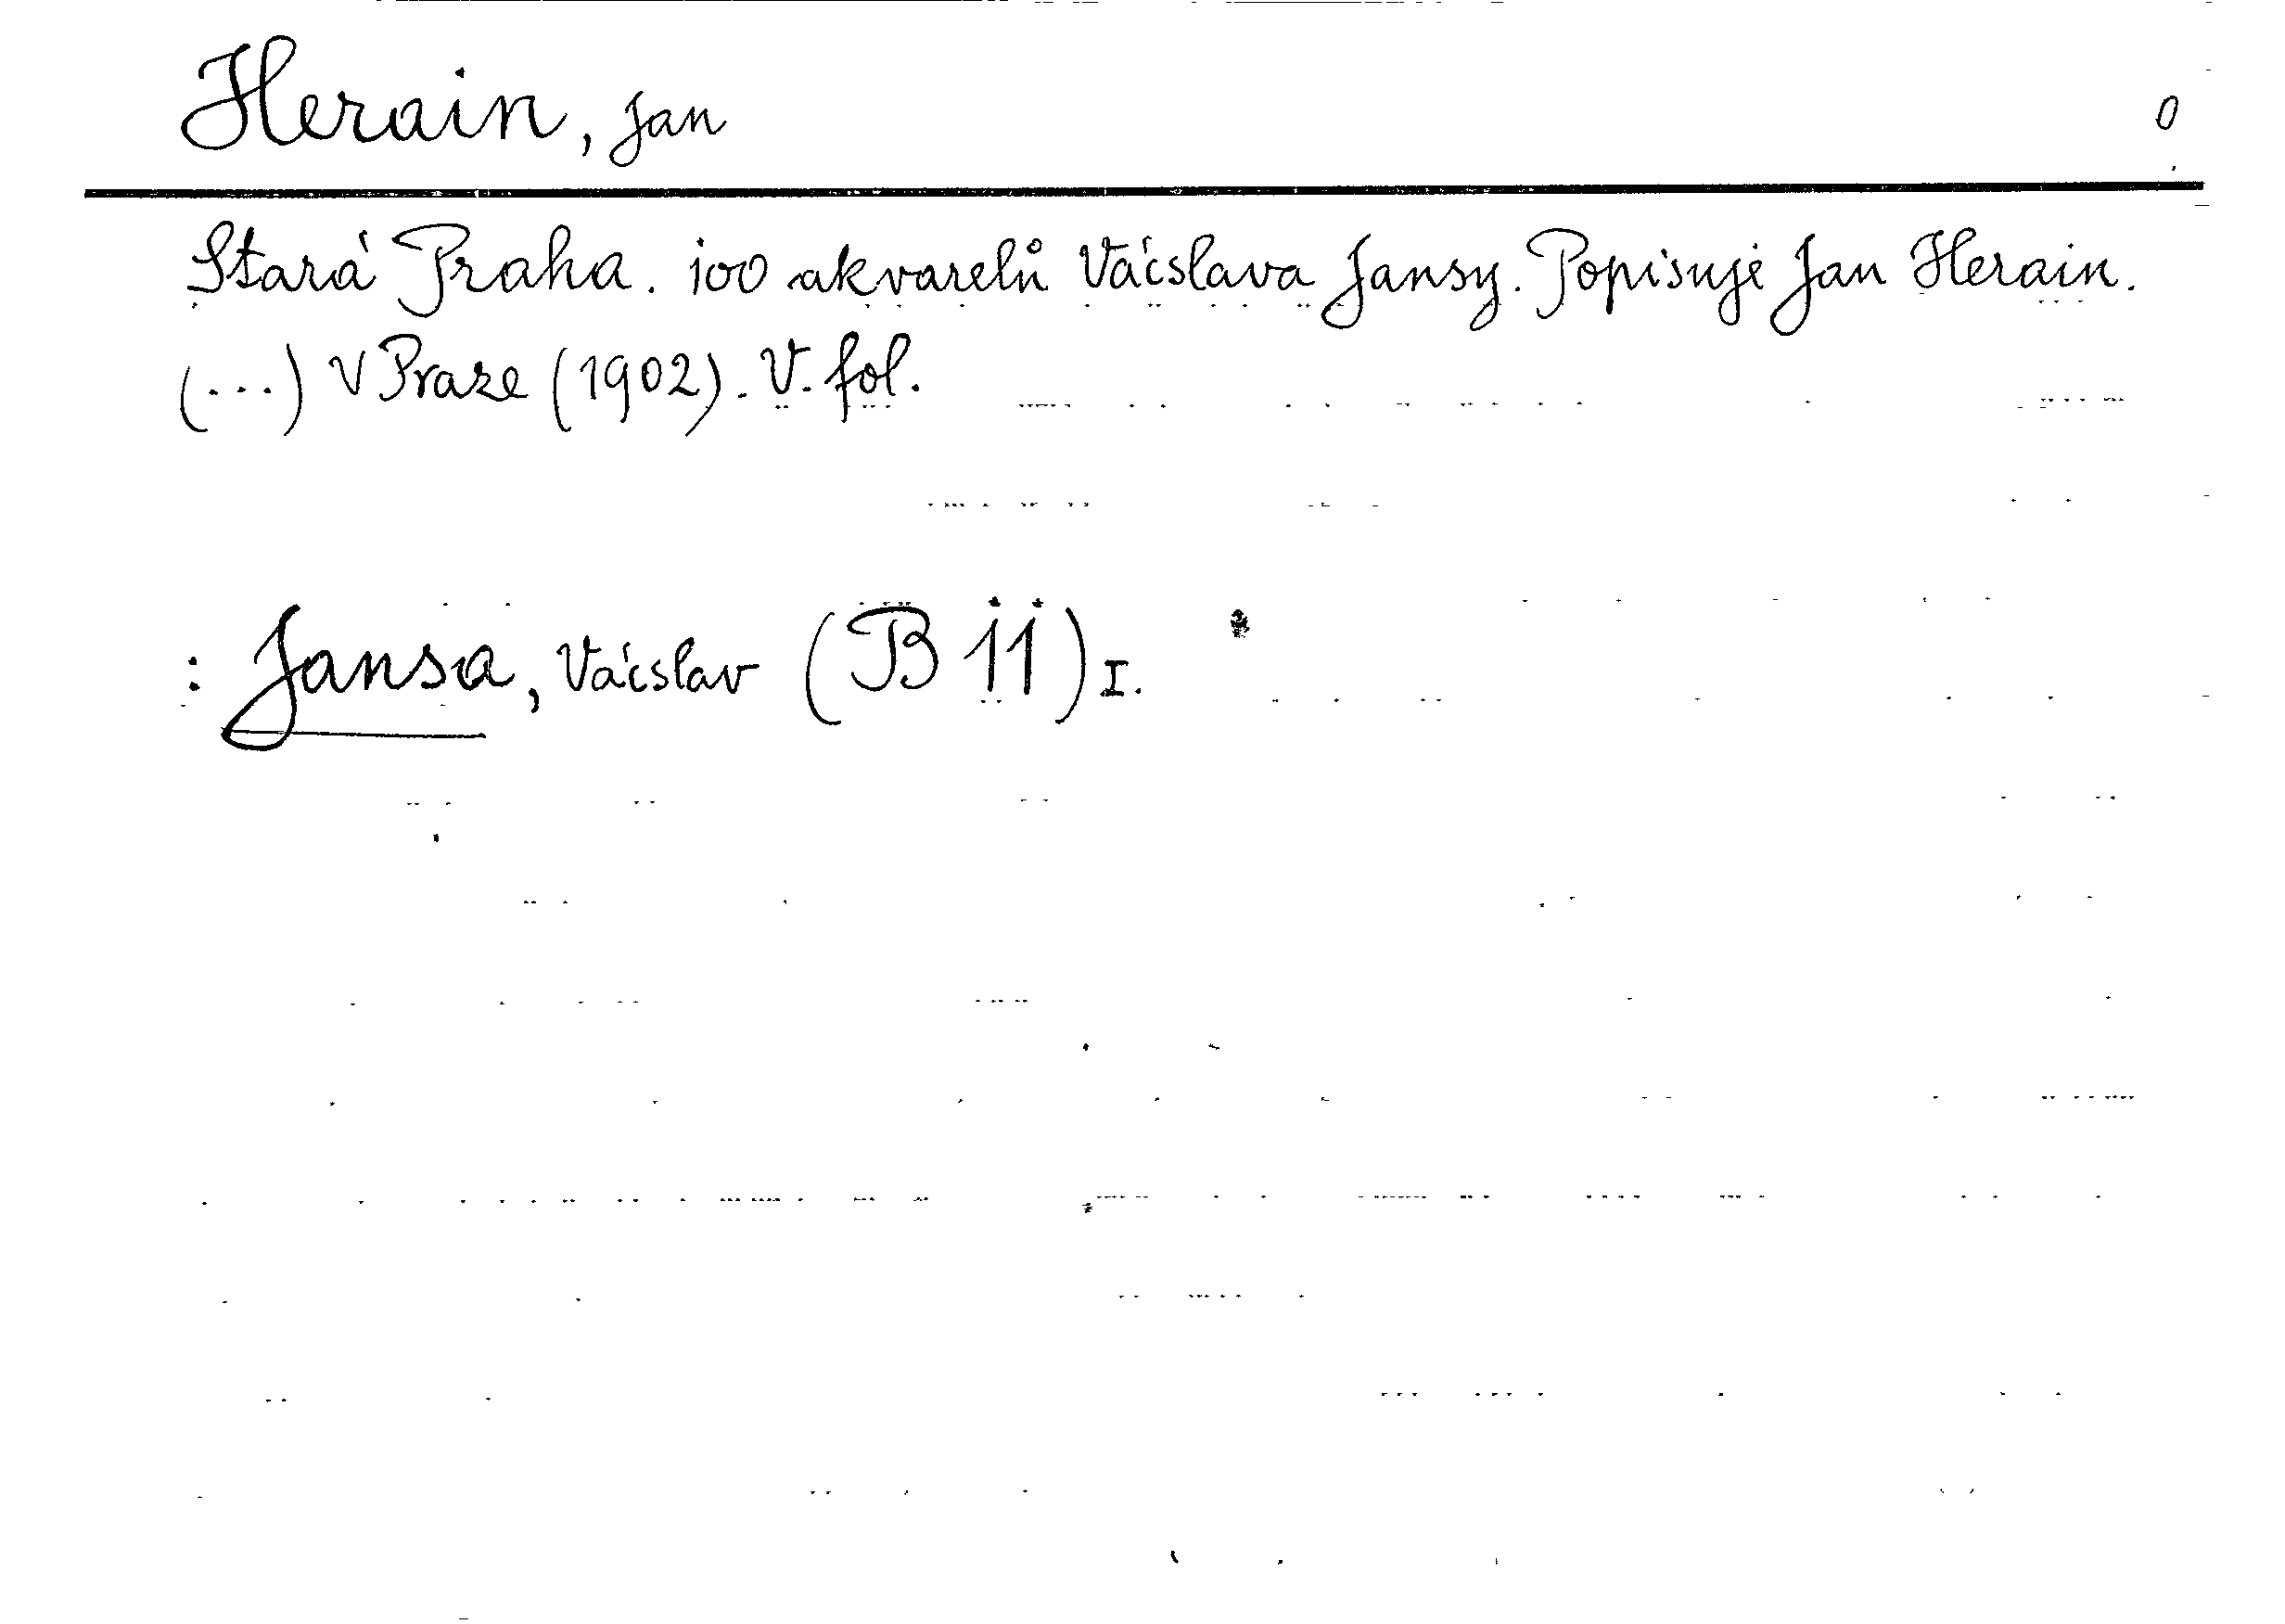 Herain, Jan
0
Stará Praha. 100 akvarelů Václava Jansy. Popisuje Jan Herain.
(...) V Praze (1902). V. fol.
: Jansa, Vácslav (B 11) I.